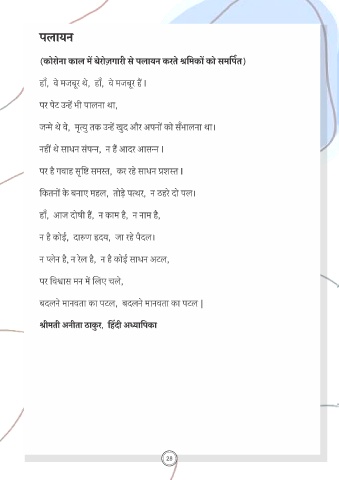 पलायन
(कोरोना काल में बेरोज़गारी से पलायन करते श्रमिकों को समर्पित)
हाँ, वे मजबूर थे, हाँ, वे मजबूर हैं।
पर पेट उन्हें भी पालना था,
जन्मे थे वे, मृत्यु तक उन्हें खुद और अपनों को सँभालना था।
नहीं थे साधन संपन्न, न हैं आदर आसन्न ।
पर है गवाह सृष्टि समस्त, कर रहे साधन प्रशस्त ।
कितनों के बनाए महल, तोड़े पत्थर, न ठहरे दो पल।
हाँ, आज दोषी हैं, न काम है, न नाम है,
न है कोई, दारूण हृदय, जा रहे पैदल।
न प्लेन है, न रेल है, न है कोई साधन अटल,
पर विश्वास मन में लिए चले,
बदलने मानवता का पटल, बदलने मानवता का पटल |
श्रीमती अनीता ठाकुर, हिंदी अध्यापिका
28